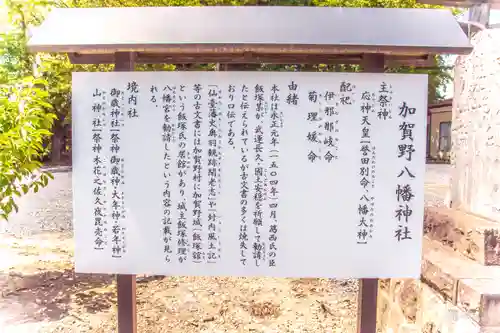 加賀野八幡神社
主祭神
応神天皇【誉田別命、八幡大神】
配祀
伊邪那岐命
菊理媛命
由緒
本社は永正元年（一五〇四年）四月、葛西氏の臣
飯塚某が、武運長久・国土安穏を祈願して勧請し
たと伝えられているが古文書の多くは焼失して
おり口伝である。
『仙臺藩火奥羽観跡聞老志』や『封内風土記』
等の古文書には加賀野村に加賀野城（飯塚舘）
という飯塚氏の居舘があり、城主飯塚修理が
八幡宮を勧請したという内容の記載が見ら
れる。
境内社
御歳神社【祭神 御歳神・大年神・若年神】
山神社【祭神 木花之佐久夜毘売命】